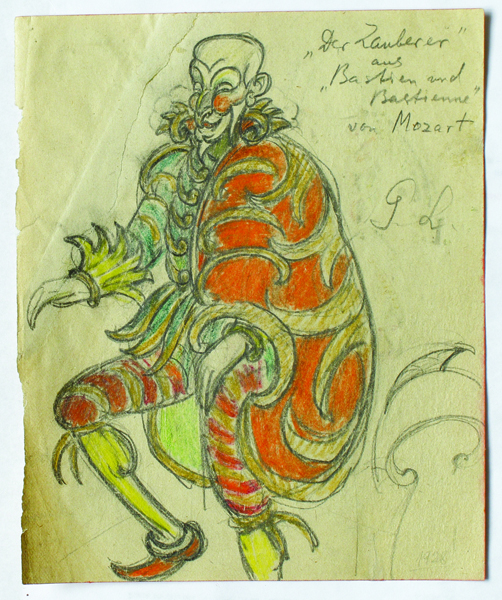 „Der Zauberer"
aus
„Bastien und
Bastienne"
von Mozart